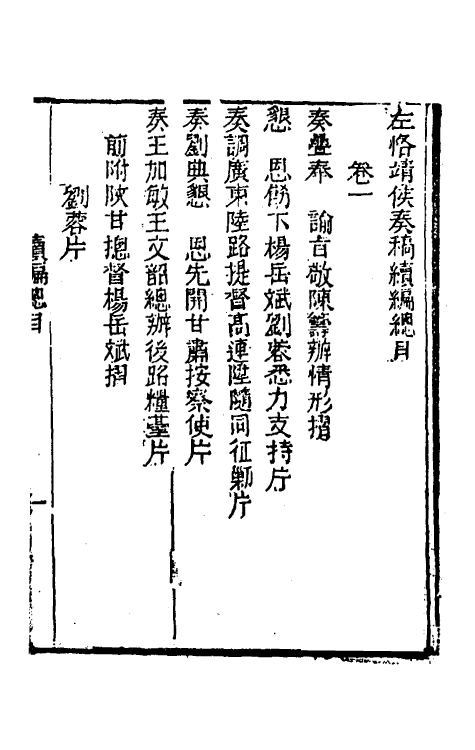 左恪靖侯奏稿續編總目
卷一
奏疊奉　諭旨敬陳籌辦情形摺
懇　恩飭下楊岳斌劉蓉悉力支持片
奏調廣東陸路提督高連陞隨同征剿片
奏劉典懇　恩先開甘肅按察使片
奏王加敏王文韶總辦後路糧臺片
前附陝甘摠督楊岳斌摺
劉蓉片
續編總目
一